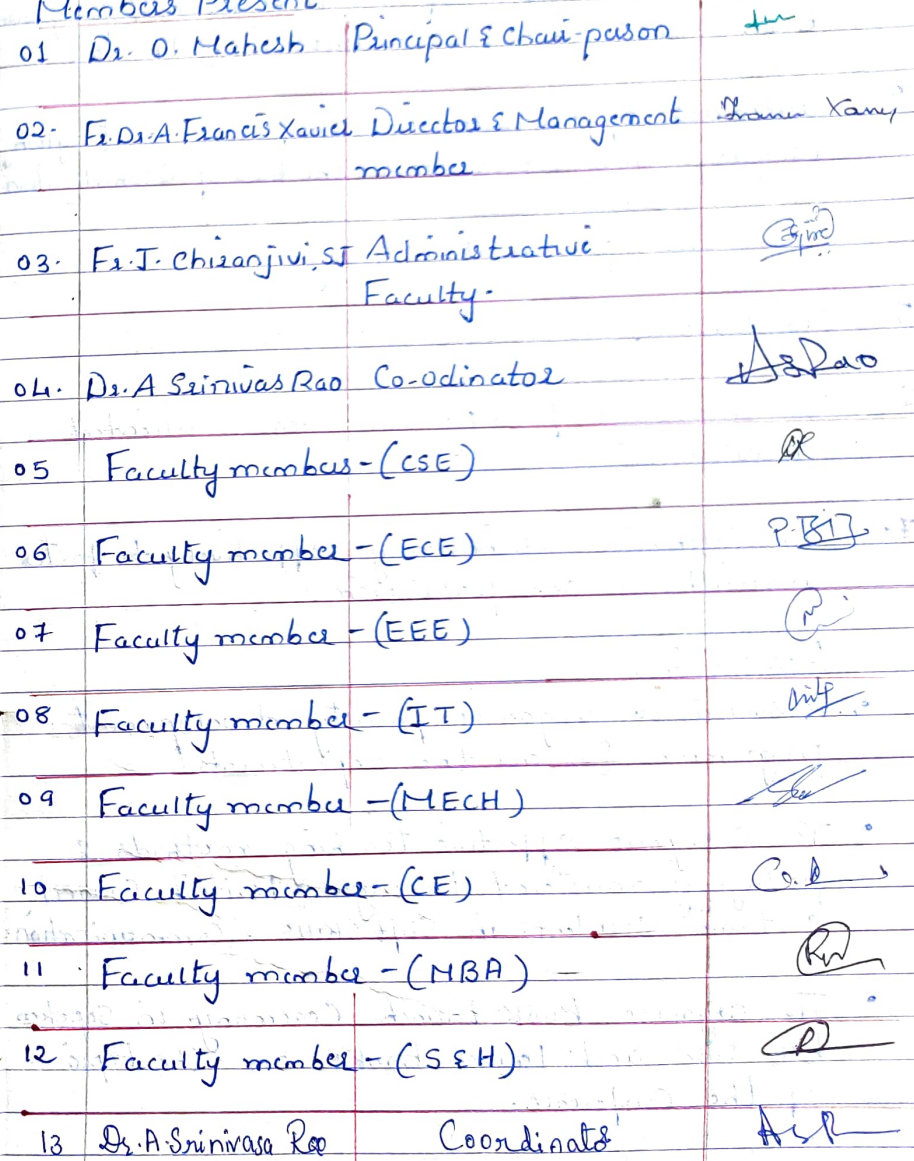 Members Present
01 Dr. O. Mahesh Principal & Chair-person
02. Fr. Dr. A. Francis Xavier Director & Management
member
03. Fr. J. Chiranjivi, SJ Administrative
Faculty.
04. Dr. A Srinivas Rao Co-odinator ASRao
05 Faculty members - (CSE)
06 Faculty member - (ECE)
07 Faculty member - (EEE)
08 Faculty member - (IT)
09 Faculty member - (MECH)
10 Faculty member - (CE)
11 Faculty member - (MBA) -
12 Faculty member - (S&H)
13 Dr. A. Srinivasa Rao Coordinator